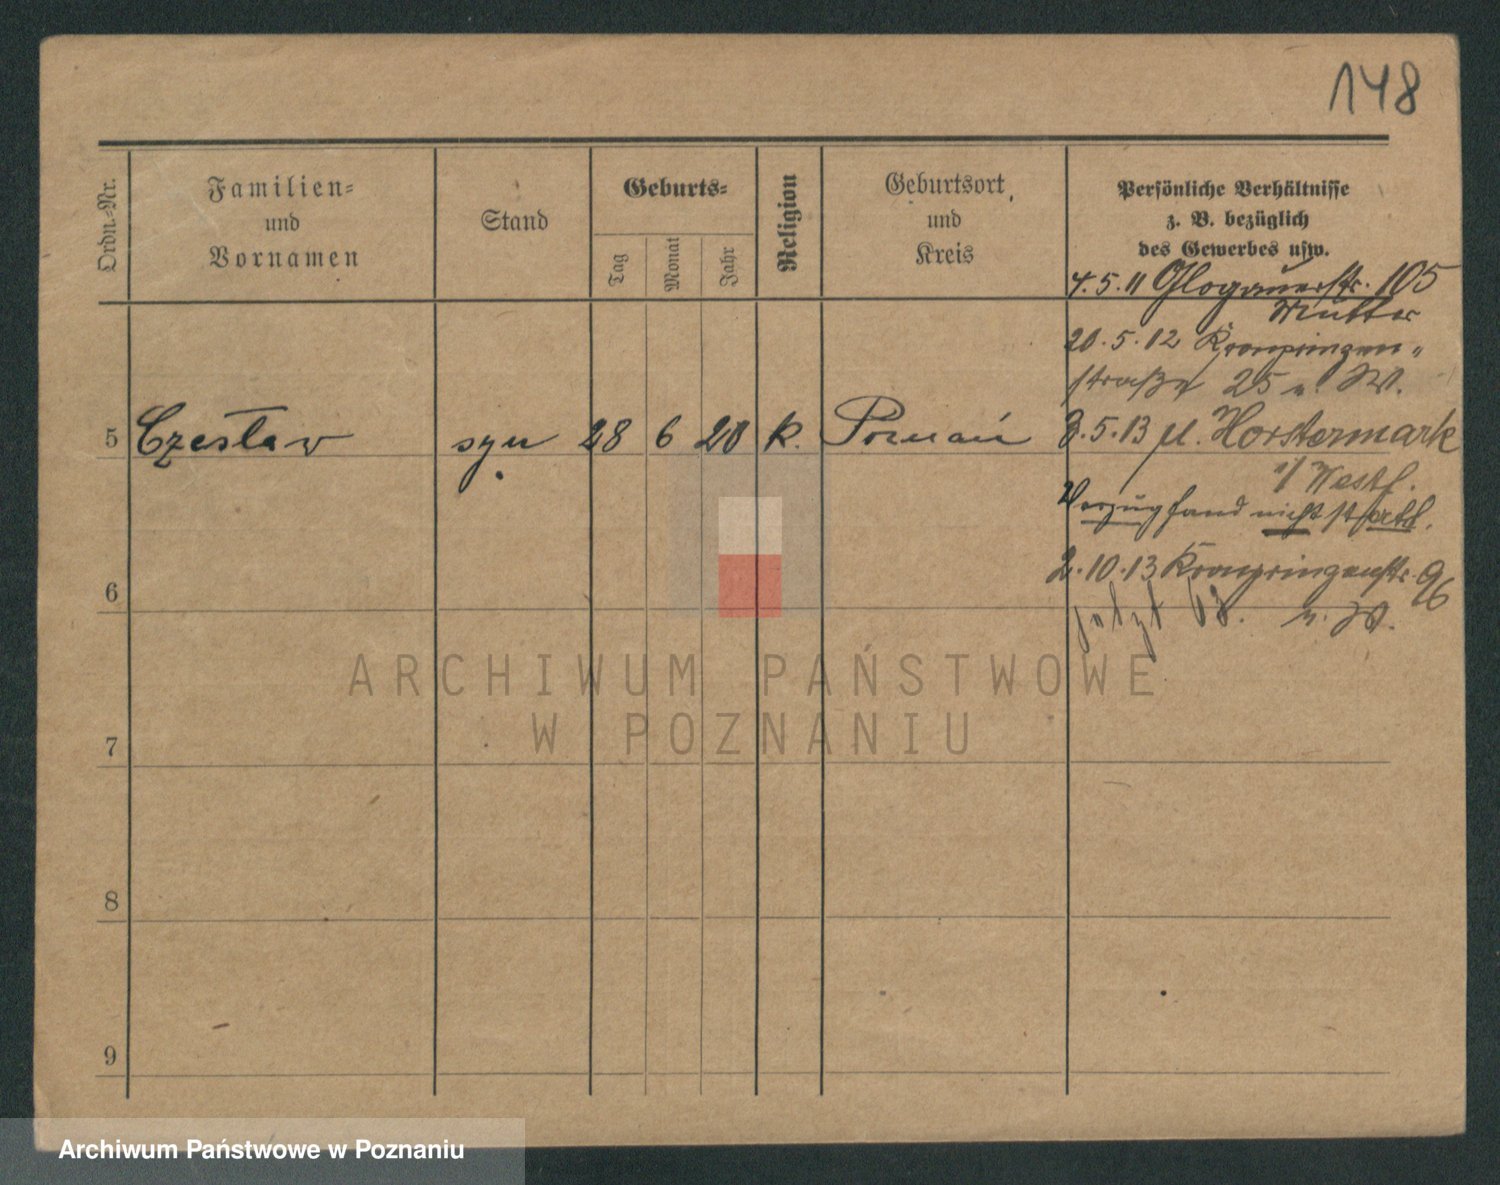 148
Ordn.-Nr.
Familien-
und
Vornamen
Stand
Geburts-
Tag
Monat
Jahr
Religion
Geburtsort
und
Kreis
Persönliche Verhältnisse
z. B. bezüglich
des Gewerbes usw.
4.5.11 Glogauerstr. 105
Mutter
20.5.12 Kronprinzen-
straße 25 n. W.
5 Czesław syn 28 6 20 k. Poznań
3.5.13 n. Horstermark
i/ Westf.
Verzug fand nicht statt.
2.10.13 Kronprinzenstr. 96
jetzt 63. n. W.
6
7
8
9
ARCHIWUM PAŃSTWOWE
W POZNANIU
Archiwum Państwowe w Poznaniu